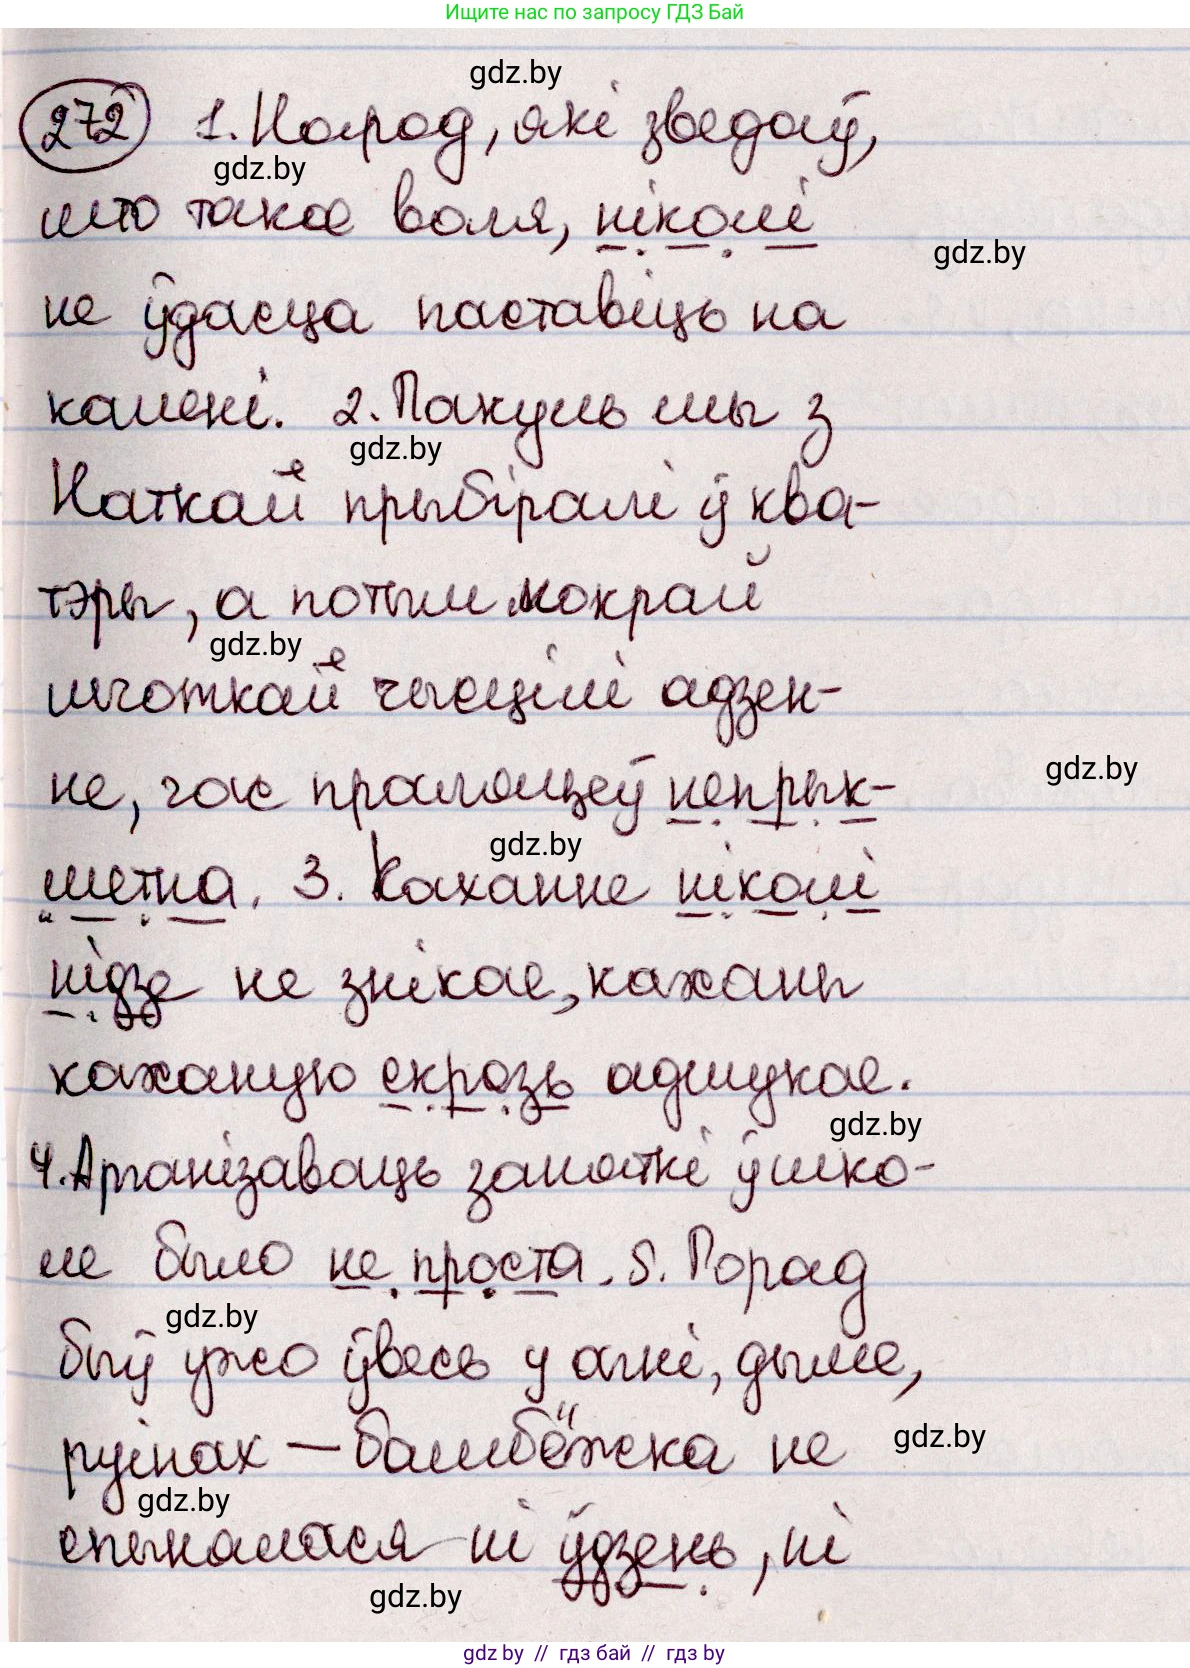 Ищите нас по запросу ГДЗ Бай
gdz.by
272 1. Народ, які зведаў,
gdz.by
што такое воля, ніколі
gdz.by
не ўдасца паставіць на
калені. 2. Пакуль мы з
gdz.by
Наткай прыбіралі ў ква-
тэры, а потым мокрай
gdz.by
шчоткай чысцілі адзен-
не, час праляцеў непрык-
gdz.by
метна. 3. Каханне ніколі
gdz.by
нідзе не знікае, каханы
каханую скрозь адшукае.
gdz.by
4. Арганізаваць заняткі ў шко-
ле было не проста. 5. Горад
gdz.by
быў ужо ўвесь у агні, дыме,
руінах — бамбёжка не
gdz.by
gdz.by
спынялася ні ўдзень, ні
gdz.by
gdz by // гдз бай // гдз by